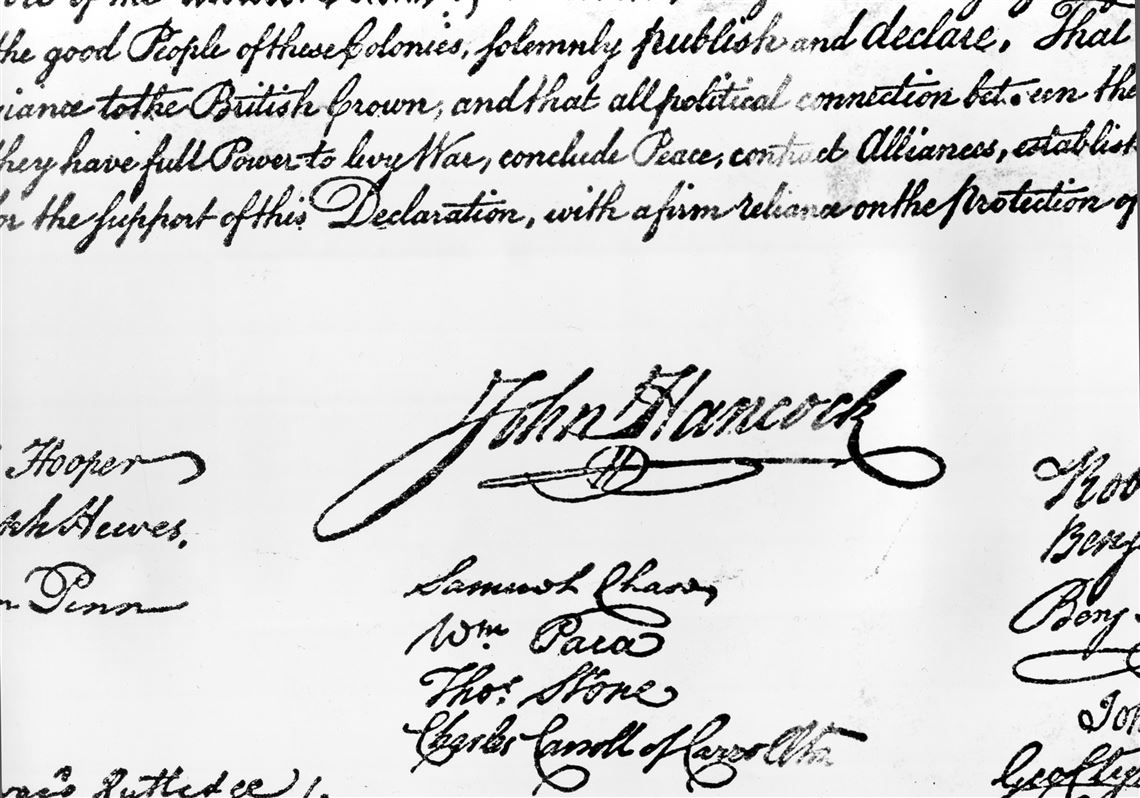 of the
the good People of these Colonies, solemnly publish and declare, That
to the British Crown, and that all political connection between the
they have full Power to levy War, conclude Peace, contract Alliances, establish
for the support of this Declaration, with a firm reliance on the protection of
John Hancock
Hooper
Hewes,
Penn
Samuel Chase
Wm. Paca
Thos. Stone
Charles Carroll of Carrollton
Rob
Benj
Benj
Rutledge